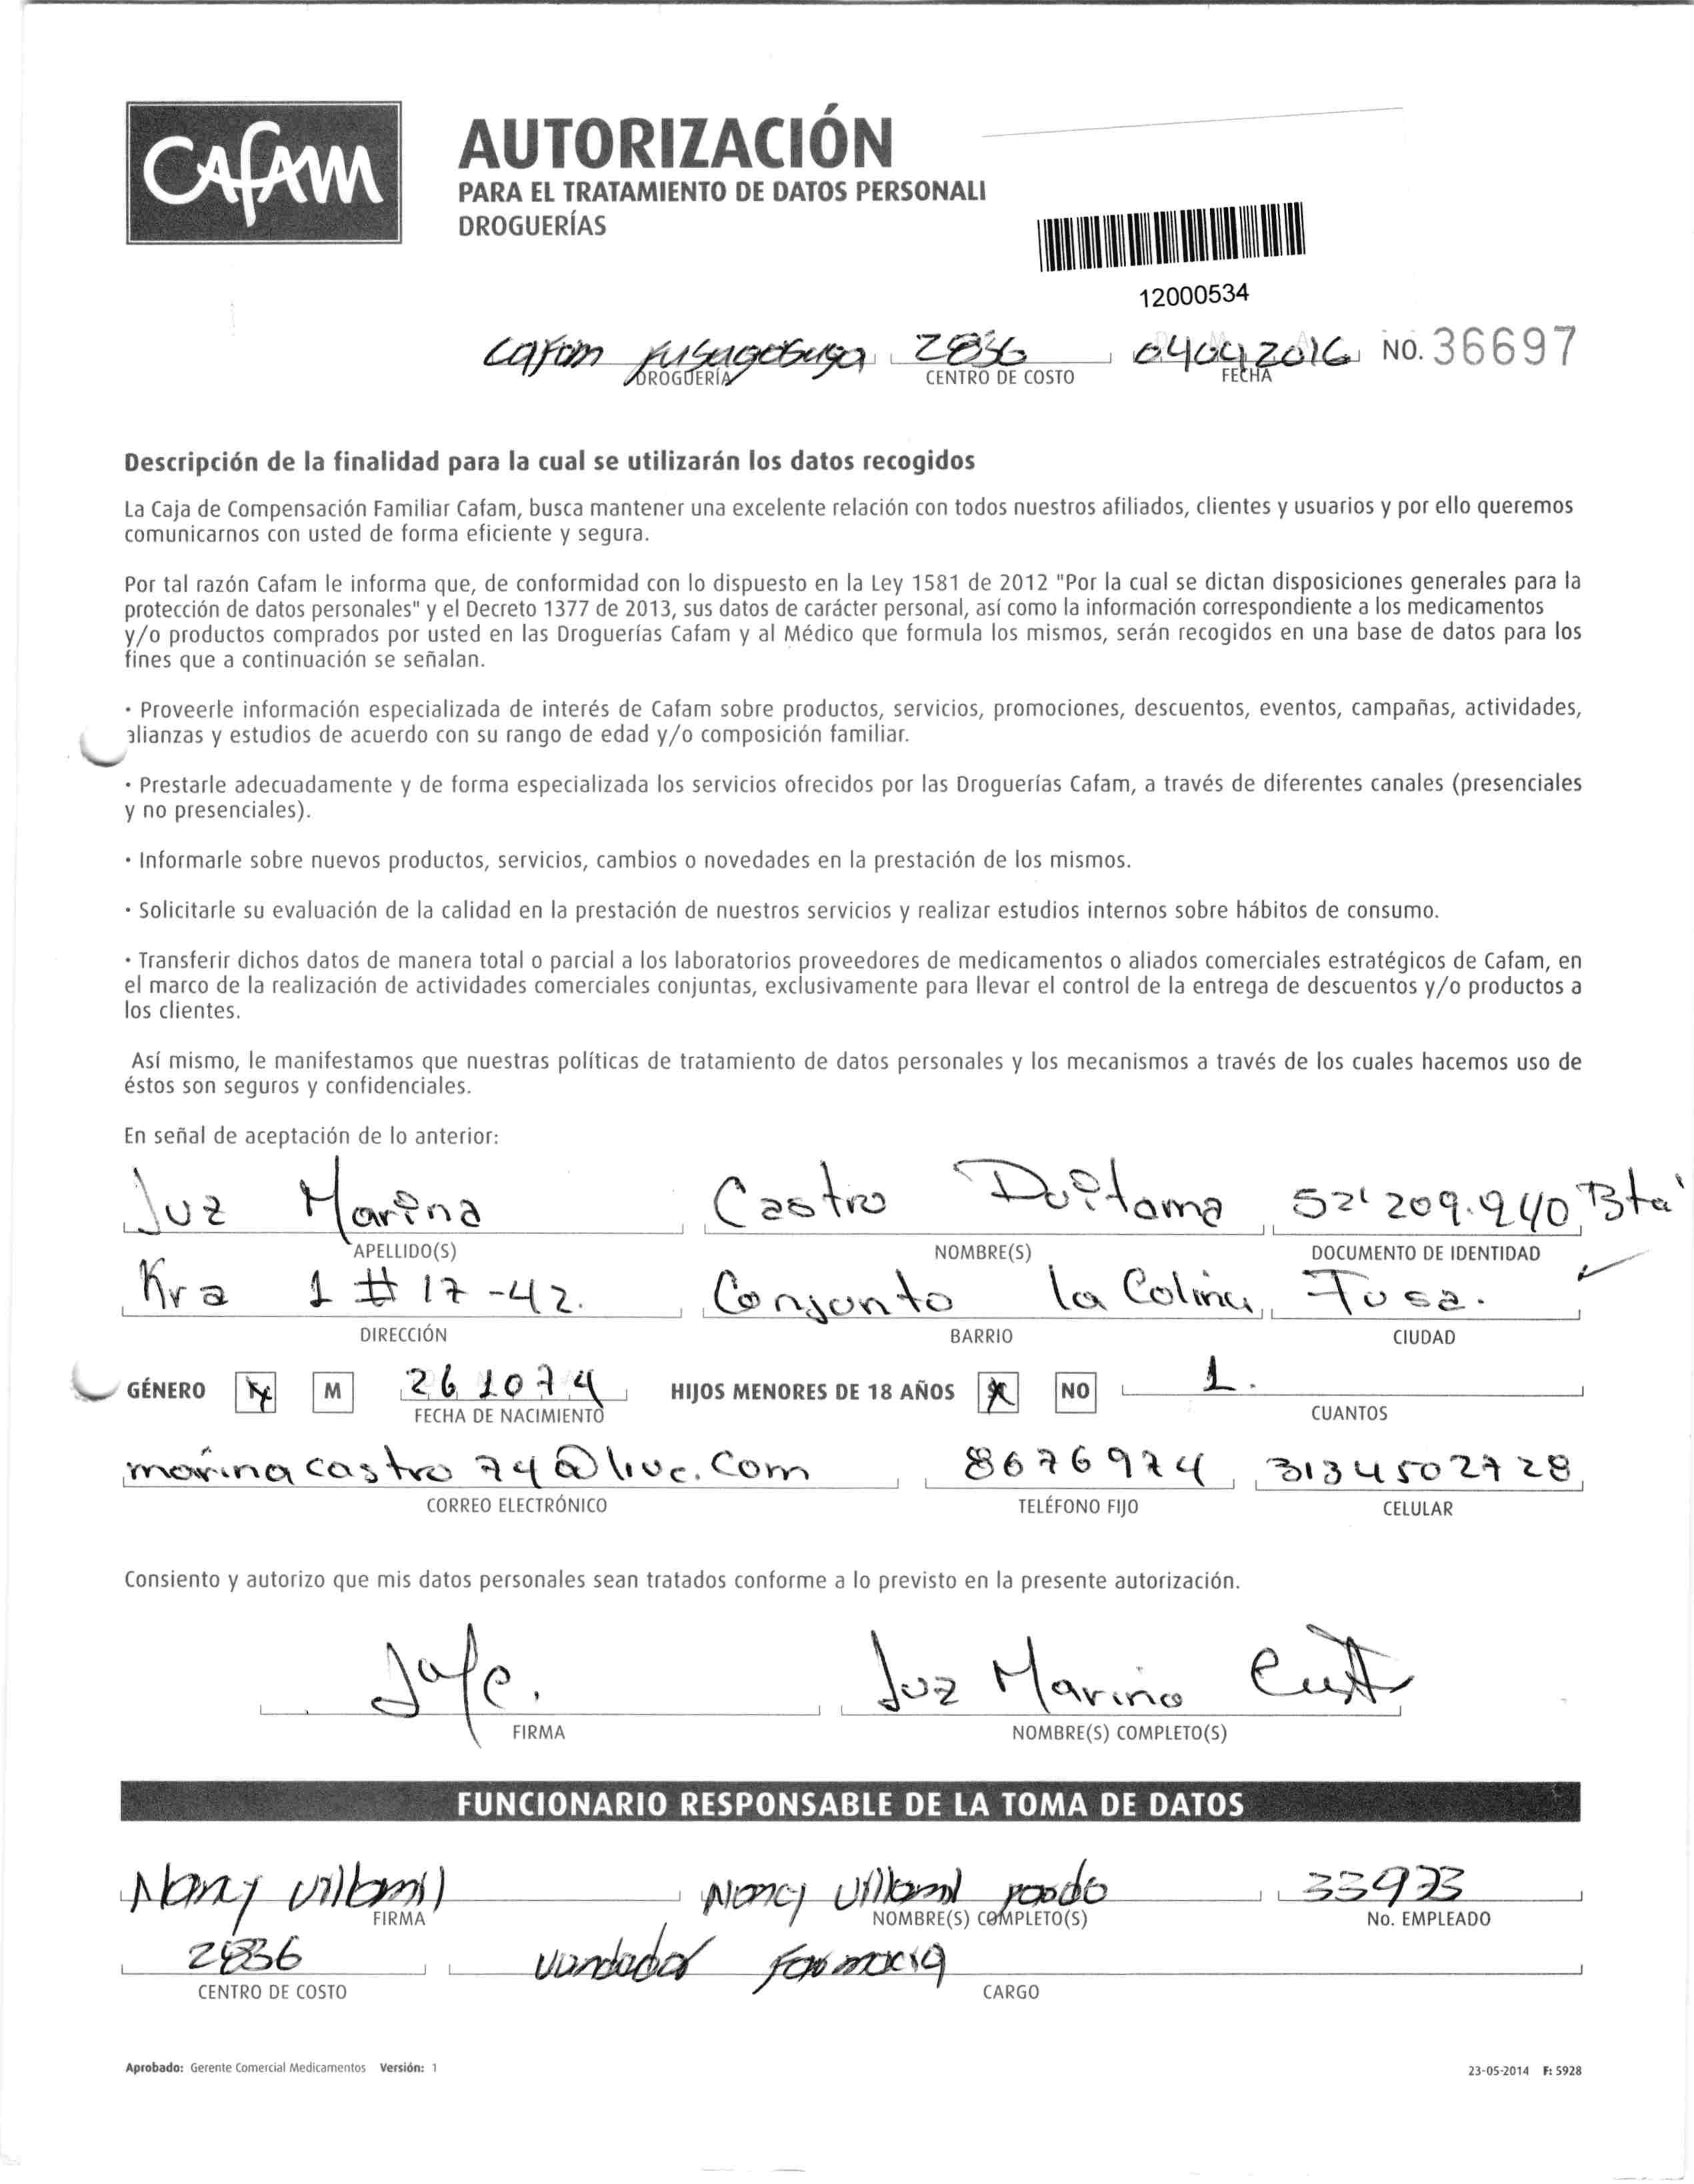 Cafam
AUTORIZACIÓN
PARA EL TRATAMIENTO DE DATOS PERSONAL
DROGUERÍAS
12000534
Cafam fusagasuga 2836 04042016 NO. 36697
DROGUERÍA CENTRO DE COSTO FECHA
Descripción de la finalidad para la cual se utilizarán los datos recogidos
La Caja de Compensación Familiar Cafam, busca mantener una excelente relación con todos nuestros afiliados, clientes y usuarios y por ello queremos
comunicarnos con usted de forma eficiente y segura.
Por tal razón Cafam le informa que, de conformidad con lo dispuesto en la Ley 1581 de 2012 "Por la cual se dictan disposiciones generales para la
protección de datos personales" y el Decreto 1377 de 2013, sus datos de carácter personal, así como la información correspondiente a los medicamentos
y/o productos comprados por usted en las Droguerías Cafam y al Médico que formula los mismos, serán recogidos en una base de datos para los
fines que a continuación se señalan.
· Proveerle información especializada de interés de Cafam sobre productos, servicios, promociones, descuentos, eventos, campañas, actividades,
alianzas y estudios de acuerdo con su rango de edad y/o composición familiar.
· Prestarle adecuadamente y de forma especializada los servicios ofrecidos por las Droguerías Cafam, a través de diferentes canales (presenciales
y no presenciales).
· Informarle sobre nuevos productos, servicios, cambios o novedades en la prestación de los mismos.
· Solicitarle su evaluación de la calidad en la prestación de nuestros servicios y realizar estudios internos sobre hábitos de consumo.
· Transferir dichos datos de manera total o parcial a los laboratorios proveedores de medicamentos o aliados comerciales estratégicos de Cafam, en
el marco de la realización de actividades comerciales conjuntas, exclusivamente para llevar el control de la entrega de descuentos y/o productos a
los clientes.
Así mismo, le manifestamos que nuestras políticas de tratamiento de datos personales y los mecanismos a través de los cuales hacemos uso de
éstos son seguros y confidenciales.
En señal de aceptación de lo anterior:
Luz Marina Castro Duitama 52'209.940 Bta'
APELLIDO(S) NOMBRE(S) DOCUMENTO DE IDENTIDAD
Kra 1 # 17-42. Conjunto la Colina Fusa.
DIRECCIÓN BARRIO CIUDAD
GÉNERO M 261074 HIJOS MENORES DE 18 AÑOS NO 1.
FECHA DE NACIMIENTO CUANTOS
marinacastro74@live.com 8676974 3134502728
CORREO ELECTRÓNICO TELÉFONO FIJO CELULAR
Consiento y autorizo que mis datos personales sean tratados conforme a lo previsto en la presente autorización.
Luz Marina
FIRMA NOMBRE(S) COMPLETO(S)
FUNCIONARIO RESPONSABLE DE LA TOMA DE DATOS
Nancy villamil Nancy villamil pardo 33973
FIRMA NOMBRE(S) COMPLETO(S) No. EMPLEADO
2836 vendedor farmacia
CENTRO DE COSTO CARGO
Aprobado: Gerente Comercial Medicamentos Versión: 1 23-05-2014 F: 5928